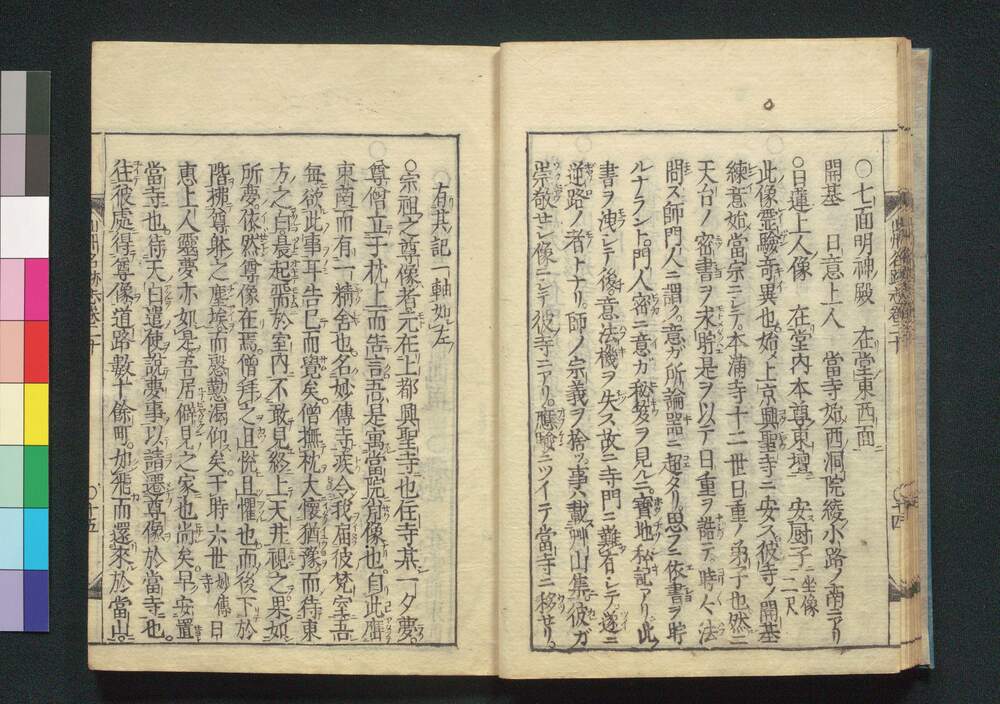 〇七面明神殿　在堂東西面
開基　日意上人　當寺始西洞院綾小路ノ南ニアリ
〇日蓮上人像　在堂内本尊東壇　安厨子 坐像二尺
此像霊驗奇異也始メ上京興聖寺ニ安ス彼寺ノ開基
練意始當宗ニシテ本満寺十二世日重ノ弟子也然ニ
天台ノ密書ヲ求時是ヲ以テ日重ヲ詰テ時々法
問ス師門人ニ謂ク意ガ所論器ニ超タリ思フニ依書ヲ
ルナラント門人密ニ意ガ秘笈ヲ見ルニ實地私記アリ此
書ヲ洩シテ後意法機ヲ失ス故ニ寺門ニ難有シテ遂ニ
逆路ノ者トナリ師ノ宗義ヲ捨ツ事ハ載艸山集彼ガ
崇敬セシ像ニシテ彼寺ニアリ應驗ニツイテ當寺ニ移セリ
〇十四
有其記一軸如左
〇宗祖之尊像者元在上都興聖寺也住寺某一夕夢
尊僧立于枕上而告言吾是寓當院肖像也自此膺
東南而有一精舎也名妙傳寺庶令我届彼梵室吾
毎欲此事耳告已而覺矣僧撫枕大懐猶豫而待東
方之白晨起而於室内不敢見終上天井視之果如
所夢依然尊像在焉僧拜之且悦且懼也而後下於
階拂尊躰之塵埃而慇懃渇仰矣于時六世妙傳寺日
恵上人靈夢亦如是吾居僻見之家也尚矣早安置
當寺也待天白遣使説夢事以請遷尊像於當寺也
往彼處得尊像道路數十餘町如飛而還來於當山
〇十五